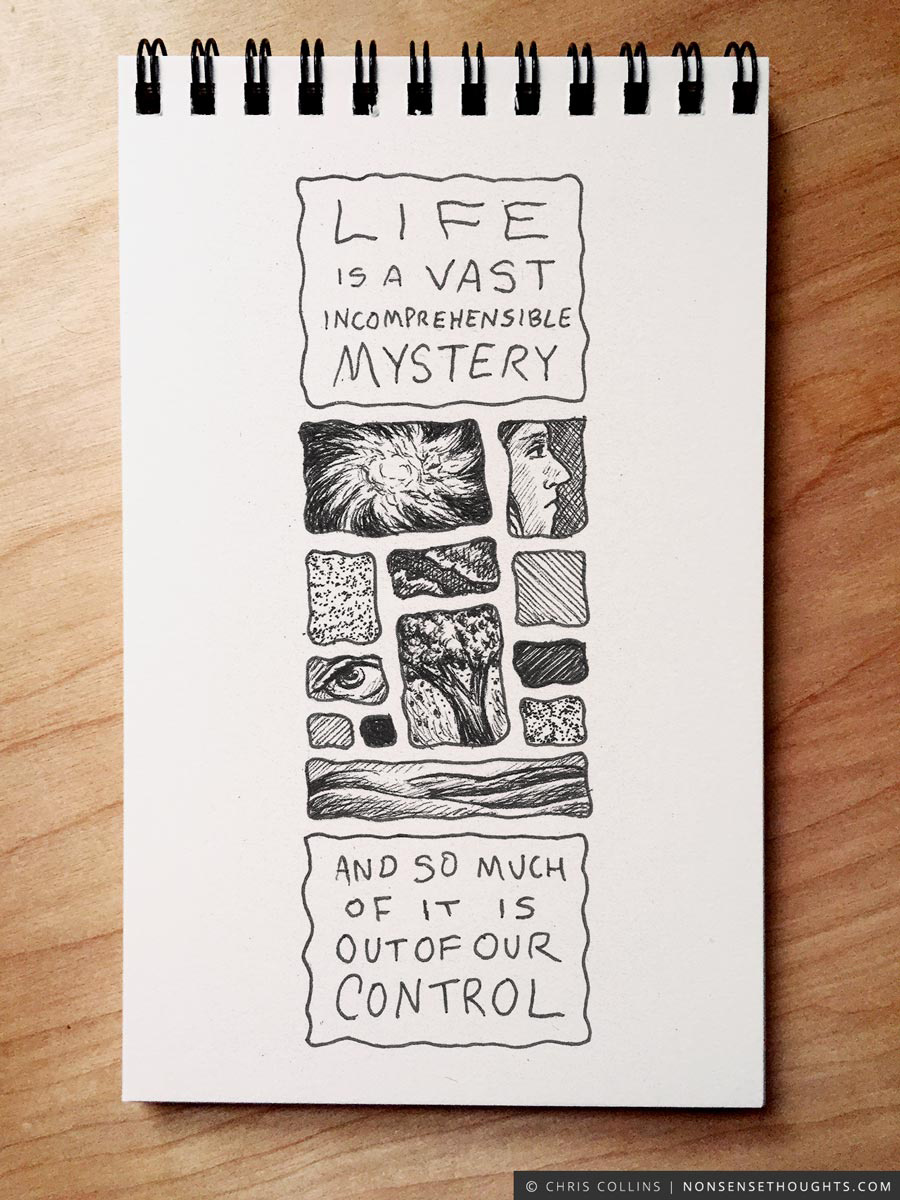 LIFE
IS A VAST
INCOMPREHENSIBLE
MYSTERY
AND SO MUCH
OF IT IS
OUT OF OUR
CONTROL
© CHRIS COLLINS | NONSENSETHOUGHTS.COM